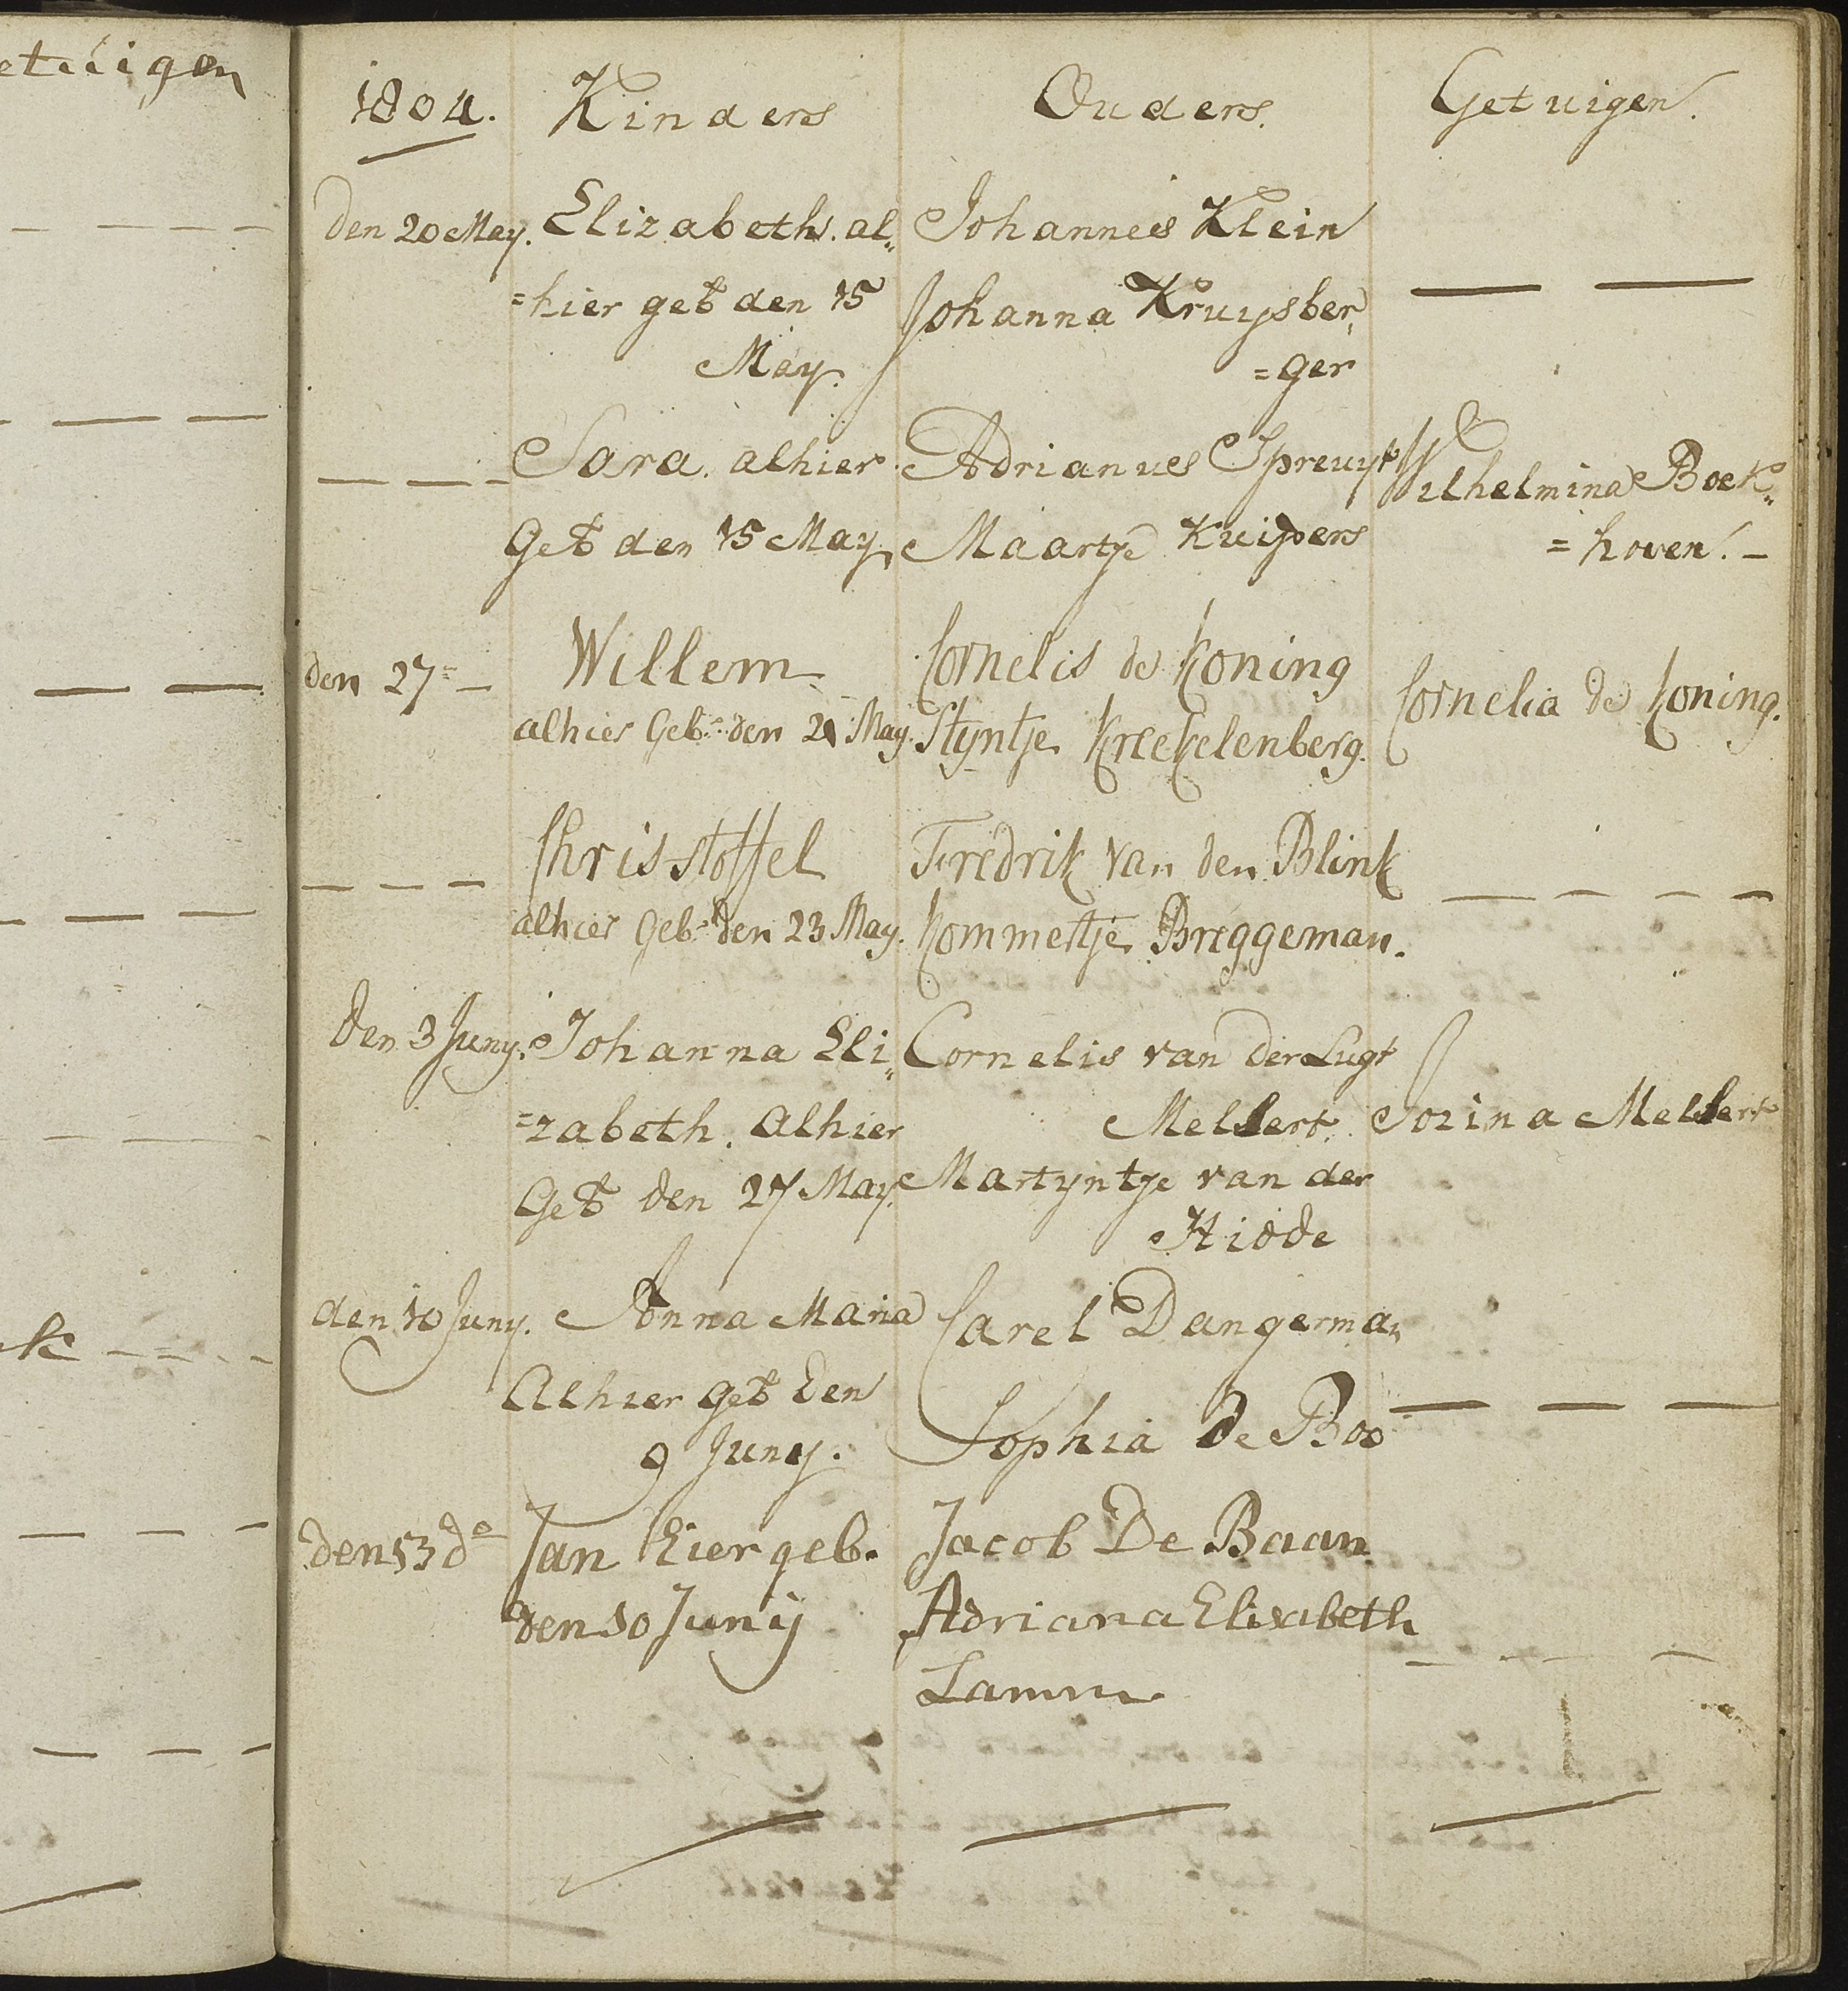 etuigen
1804. Kinders Ouders. Getuigen.
den 20 May. Elizabeth. al„ Johannes Klein
=hier geb den 15 Johanna Kruysber„
May. =ger
Sara. alhier Adrianus Spreuyt Wilhelmina Boek„
Geb den 15 May Maartje Kuijpers =hoven. –
den 27 – Willem Cornelis de Koning Cornelia de Koning.
alhier Geb: den 21 May. Styntje Kreekelenberg.
Chrisstoffel Fredrik van den Blink
alhier Geb: den 23 May. Kommertje Breggeman.
den 3 Juny. Johanna Eli„ Cornelis van der Lugt
=zabeth. Alhier Mellert. Jozina Mellert
Geb den 27 May. Martyntje van der
Hidde
den 10 Juny. Anna Maria Carel Dangerman
Alhier geb den Sophia de Boo
9 Juny.
den 13 do Jan hier geb. Jacob De Baan
den 10 Junij Adriana Elisabeth
Lamm